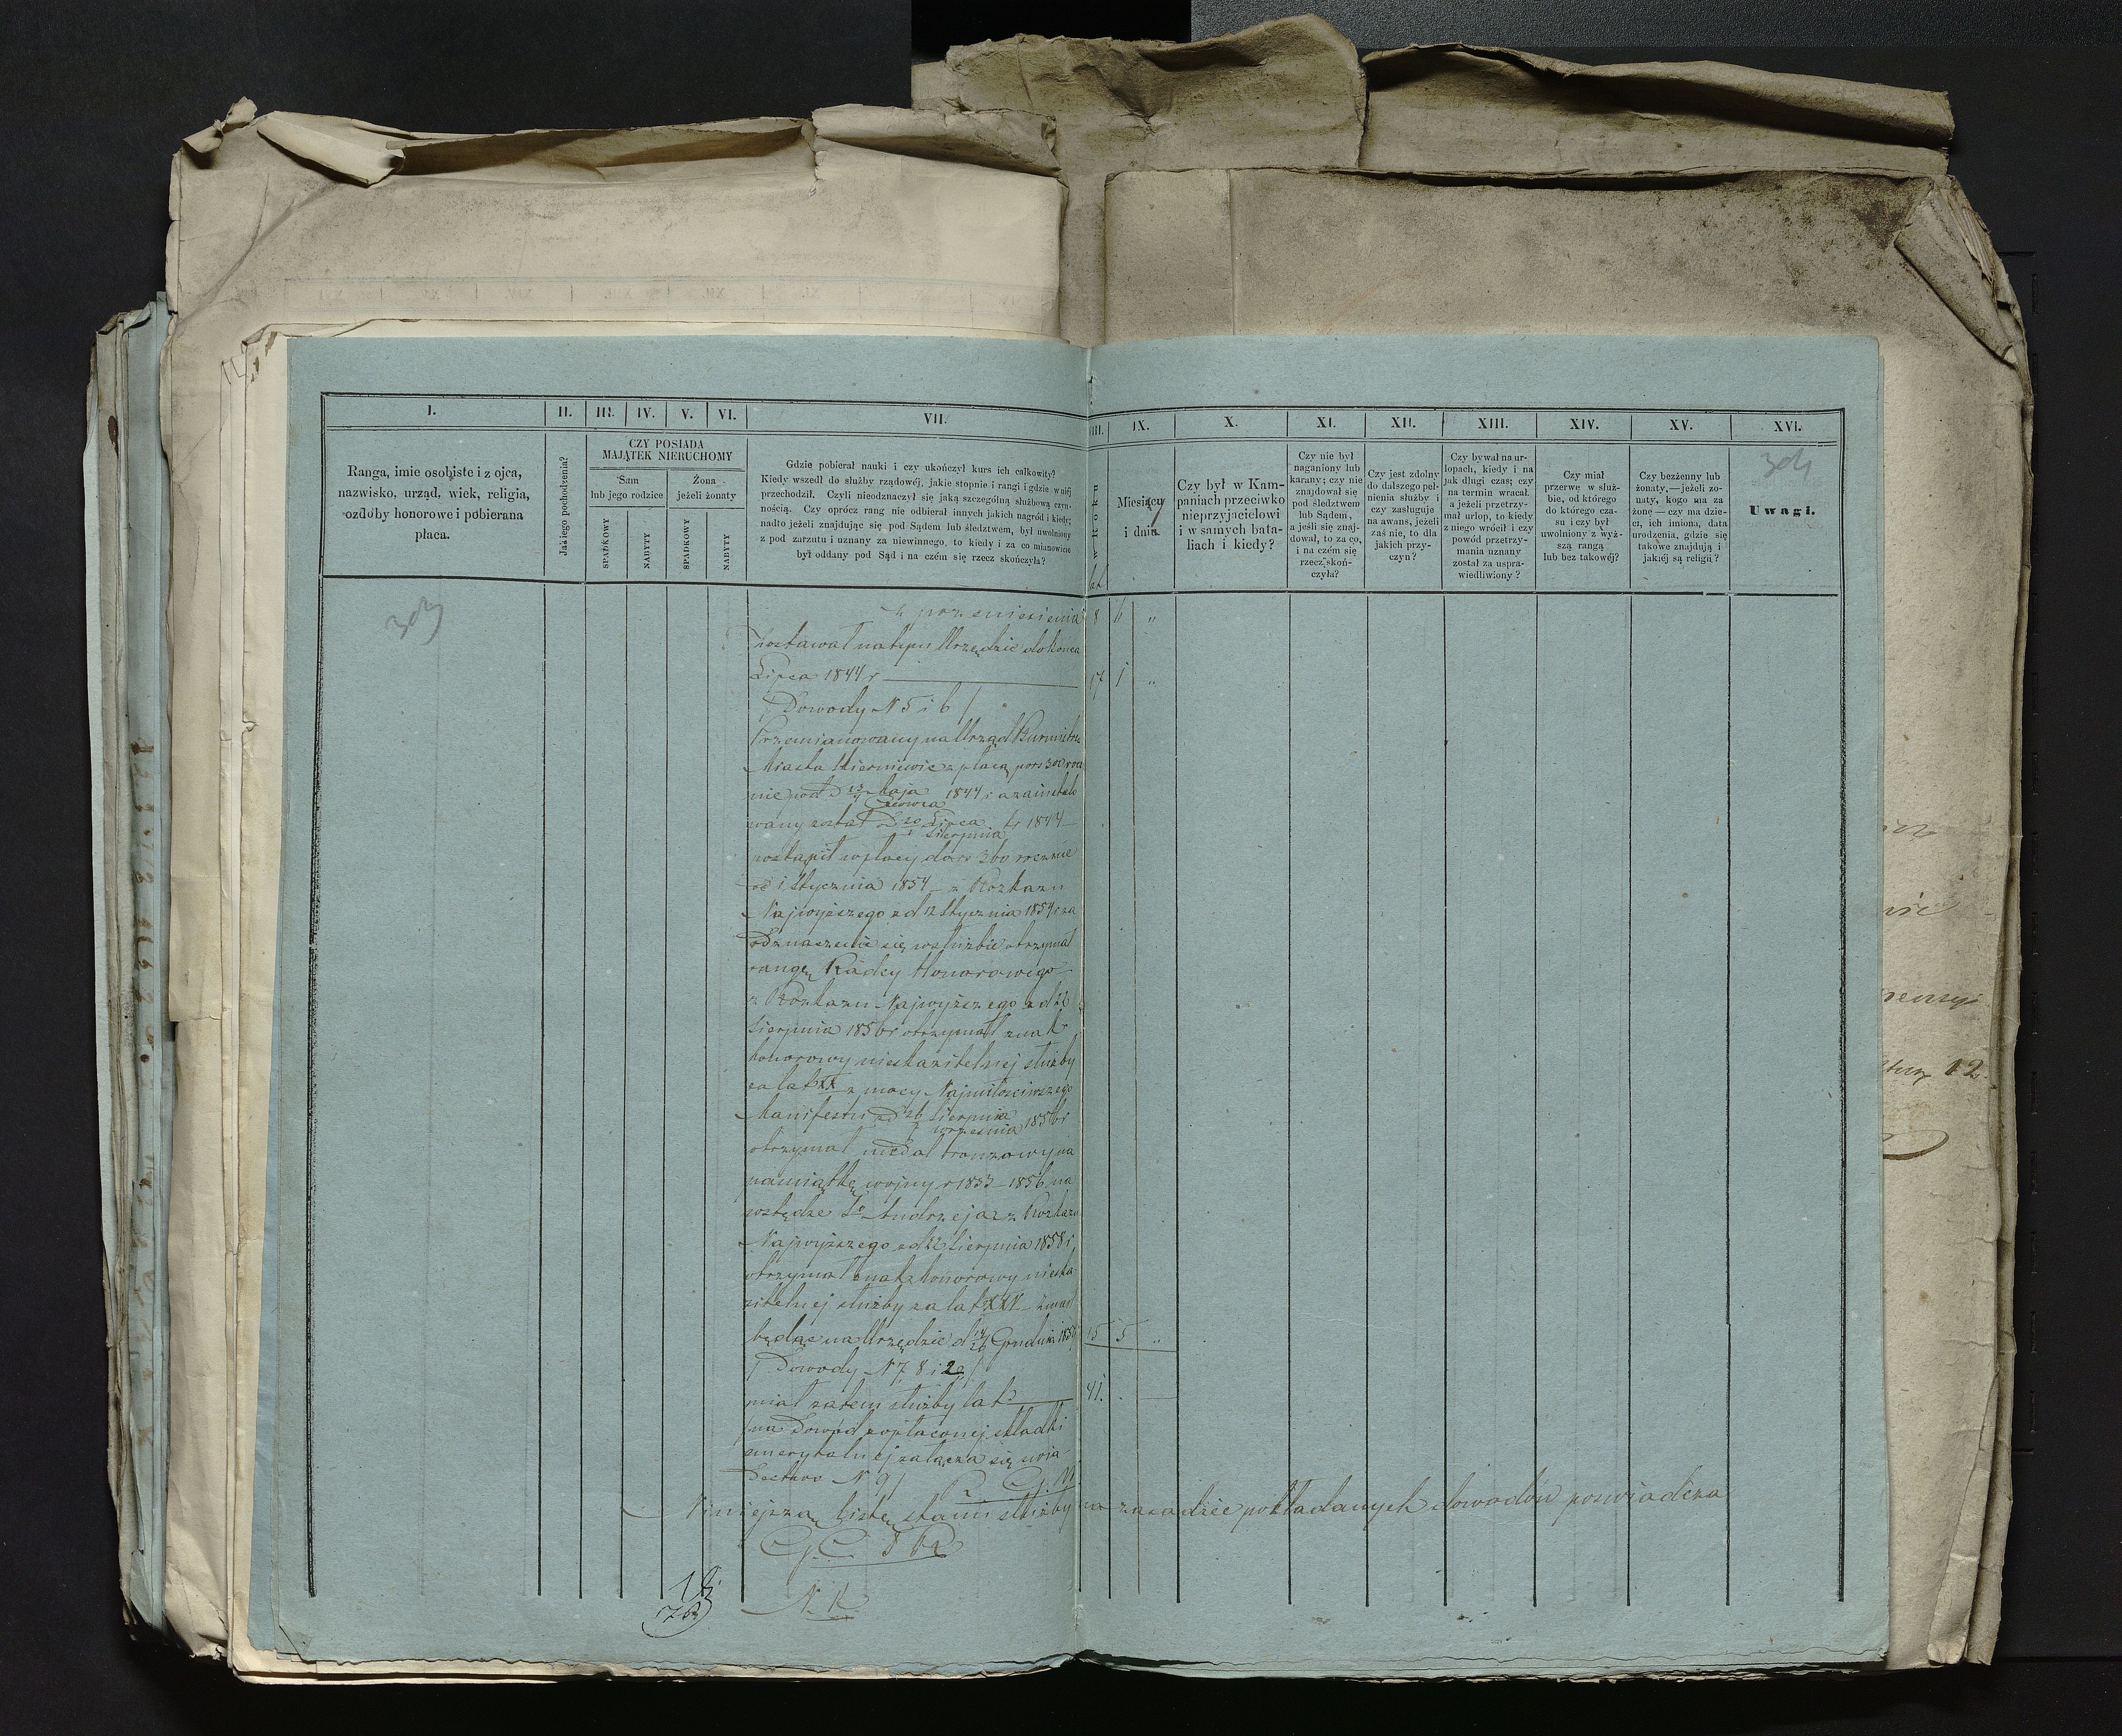 I. II. III. IV. V. VI. VII. VIII. IX. X. XI. XII. XIII. XIV. XV. XVI.
Ranga, imie osobiste i z ojca,
nazwisko, urząd, wiek, religia,
ozdoby honorowe i pobierana
płaca.
Jakiego pochodzenia?
CZY POSIADA
MAJĄTEK NIERUCHOMY
Sam
lub jego rodzice
Żona
jeżeli żonaty
SPADKOWY
NABYTY
SPADKOWY
NABYTY
Gdzie pobierał nauki i czy ukończył kurs ich całkowity?
Kiedy wszedł do służby rządowéj, jakie stopnie i rangi i gdzie w niéj
przechodził. Czyli nieodznaczył się jaką szczególną służbową czyn-
nością. Czy oprócz rang nie odbierał innych jakich nagród i kiedy;
nadto jeżeli znajdując się pod Sądem lub śledztwem, był uwolniony
z pod zarzutu i uznany za niewinnego, to kiedy i za co mianowicie
był oddany pod Sąd i na czém się rzecz skończyła?
w Roku
lat
Miesiący
i dnia
Czy był w Kam-
paniach przeciwko
nieprzyjacielowi
i w samych bata-
liach i kiedy?
Czy nie był
naganiony lub
karany; czy nie
znajdował się
pod śledztwem
lub Sądem,
a jeśli się znaj-
dował, to za co,
i na czém się
rzecz skoń-
czyła?
Czy jest zdolny
do dalszego peł-
nienia służby i
czy zasługuje
na awans, jeżeli
zaś nie, to dla
jakich przy-
czyn?
Czy bywał na ur-
lopach, kiedy i na
jak długi czas; czy
na termin wracał,
a jeżeli przetrzy-
mał urlop, to kiedy
z niego wrócił i czy
powód przetrzy-
mania uznany
został za uspra-
wiedliwiony?
Czy miał
przerwę w służ-
bie, od którego
do którego cza-
su i czy był
uwolniony z wyż-
szą rangą
lub bez takowéj?
Czy bezżenny lub
żonaty, — jeżeli żo-
naty, kogo ma za
żonę — czy ma dzie-
ci, ich imiona, data
urodzenia, gdzie się
takowe znajdują i
jakiéj są religii?
304
Uwagi.
303
z przeniesienia 8 6 „
Zostawał na tym Urzędzie do końca
Lipca 1844 r 17 1 „
/ Dowody N 5 i 6 /
Przemianowany na Urząd Burmistrza
Miasta Skierniewic z płacą 300 rocz
nie Maja 1844 r a zainstalo
Czerwca
wany został d 20 Lipca 1844
Sierpnia
postąpił w płacy do rs 360 rocznie
od 1 Stycznia 1854 – z Rozkazu
Najwyższego z d 12 Stycznia 1854 r za
odznaczenie się w służbie otrzymał
rangę Radcy Honorowego
z Rozkazu Najwyższego z d 22
Sierpnia 1856 r otrzymał znak
honorowy nieskazitelnej służby
za lat XX z mocy Najmiłościwszego
Manifestu z d 26 Sierpnia 1856 r
września
otrzymał medal bronzowy na
pamiątkę wojny r 1853 – 1856 na
wstędze Śo Andrzeja z Rozkazu
Najwyższego z d 22 Sierpnia 1858 r
otrzymał znak honorowy nieska-
zitelnej służby za lat XXV – Zmarł
będąc na Urzędzie d 14/26 Grudnia 1859 15 5 „
/ Dowody N 7, 8 i 2 /
miał zatem służby lat 41.
/ na Dowód opłaconej składki
emerytalnej załącza się świa-
dectwo N 9 /
Niniejszą listę stanu służby na zasadzie pokładanych dowodów poświadcza
N. K.
12